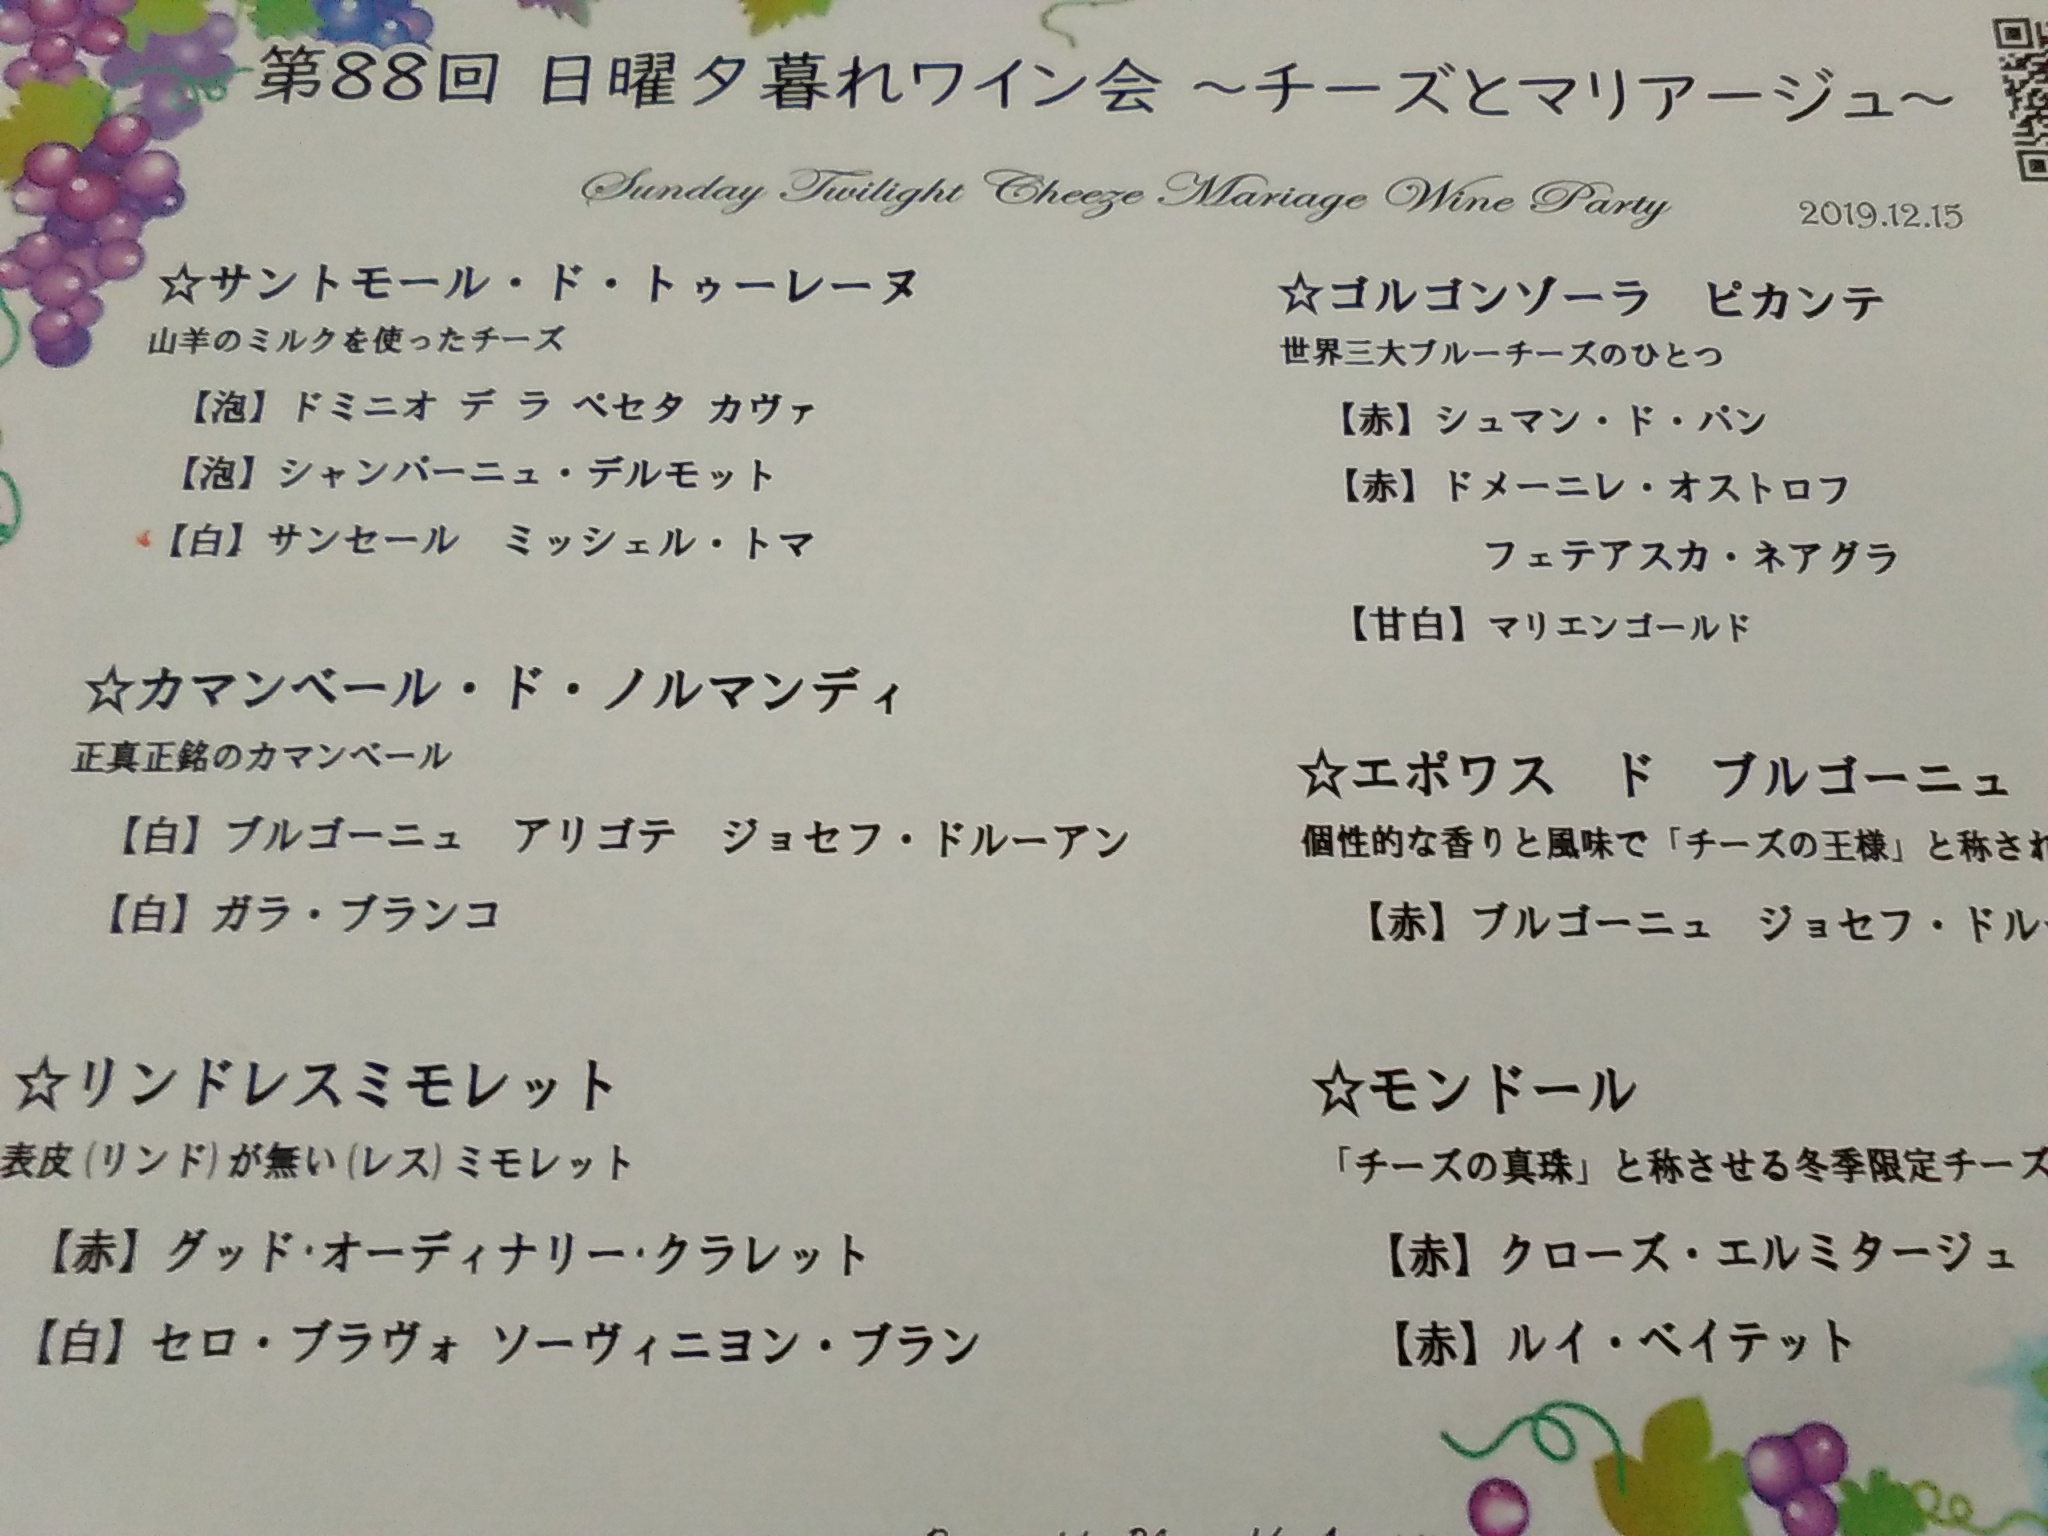 第88回 日曜夕暮れワイン会 ～チーズとマリアージュ～
Sunday Twilight Cheeze Mariage Wine Party
2019.12.15
☆サントモール・ド・トゥーレーヌ
山羊のミルクを使ったチーズ
【泡】ドミニオ デ ラ ペセタ カヴァ
【泡】シャンパーニュ・デルモット
【白】サンセール　ミッシェル・トマ
☆カマンベール・ド・ノルマンディ
正真正銘のカマンベール
【白】ブルゴーニュ　アリゴテ　ジョセフ・ドルーアン
【白】ガラ・ブランコ
☆リンドレスミモレット
表皮(リンド)が無い(レス)ミモレット
【赤】グッド・オーディナリー・クラレット
【白】セロ・ブラヴォ ソーヴィニヨン・ブラン
☆ゴルゴンゾーラ　ピカンテ
世界三大ブルーチーズのひとつ
【赤】シュマン・ド・パン
【赤】ドメーニレ・オストロフ
フェテアスカ・ネアグラ
【甘白】マリエンゴールド
☆エポワス　ド　ブルゴーニュ
個性的な香りと風味で「チーズの王様」と称され
【赤】ブルゴーニュ　ジョセフ・ドルー
☆モンドール
「チーズの真珠」と称させる冬季限定チーズ
【赤】クローズ・エルミタージュ
【赤】ルイ・ペイテット